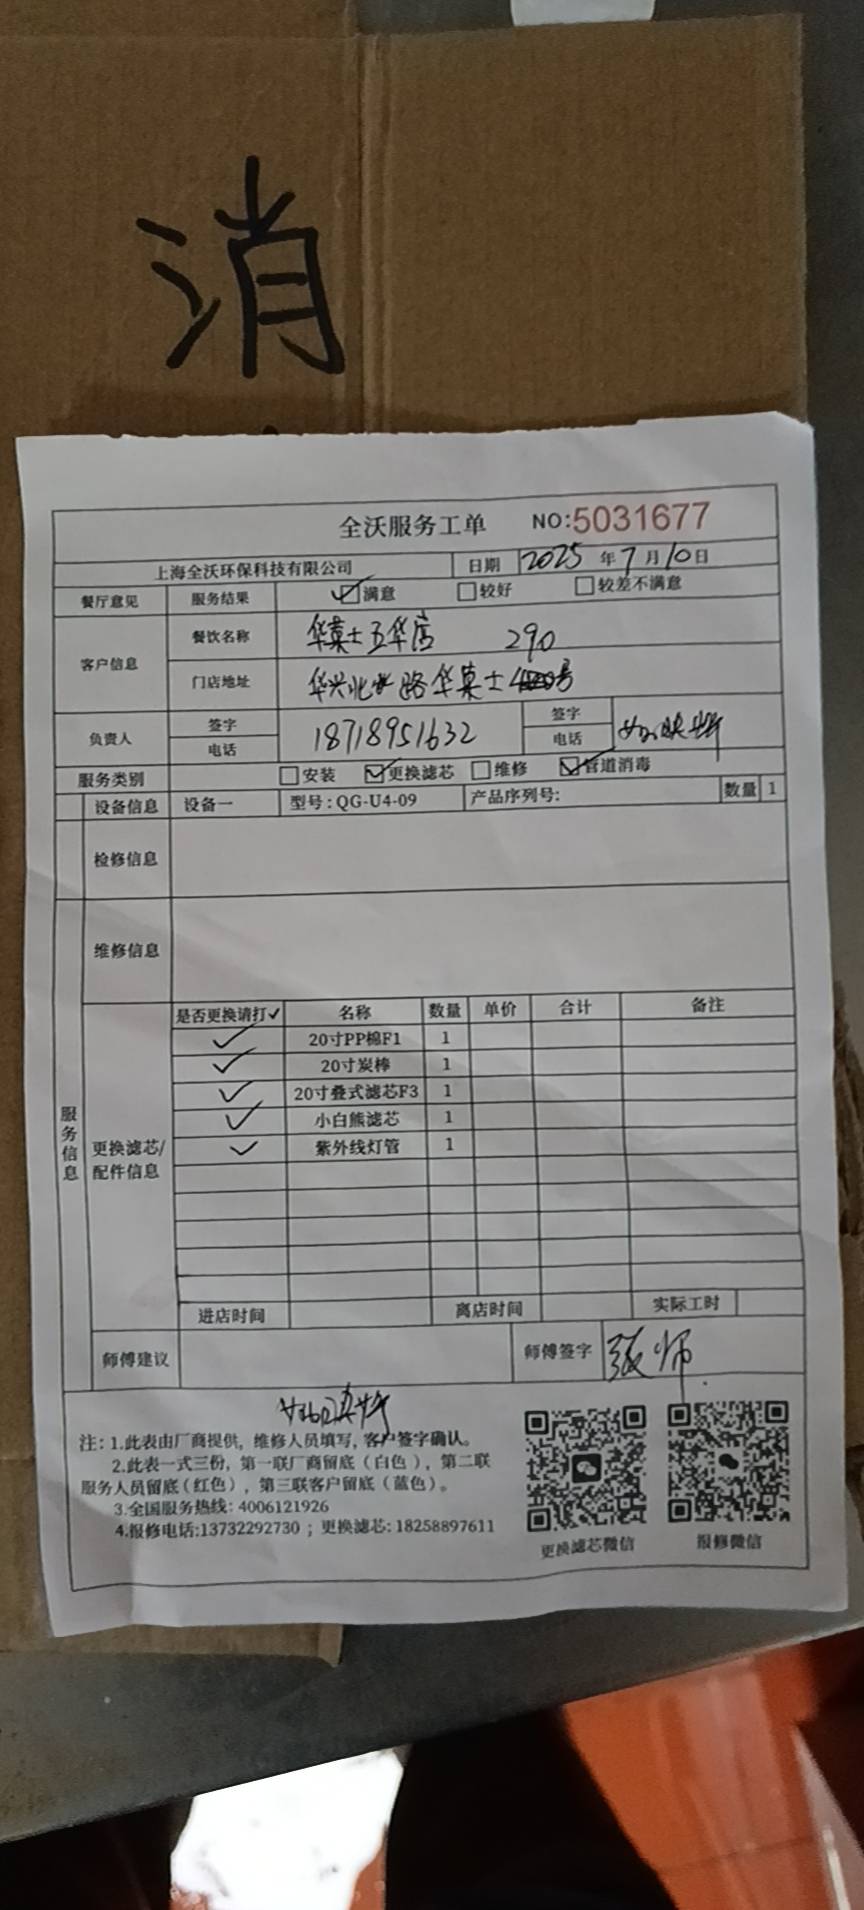 消
全沃服务工单 NO:5031677
上海全沃环保科技有限公司 日期 2025年7月10日
餐厅意见 服务结果 满意 较好 较差不满意
客户信息 餐饮名称 华莱士五华店 290
门店地址 华兴北路华莱士
负责人 签字 电话 18718951632 签字 电话
服务类别 安装 更换滤芯 维修 管道消毒
设备信息 设备一 型号:QG-U4-09 产品序列号: 数量 1
检修信息
维修信息
服务信息
更换滤芯/配件信息
是否更换请打✓ 名称 数量 单价 合计 备注
✓ 20寸PP棉F1 1
✓ 20寸炭棒 1
✓ 20寸叠式滤芯F3 1
✓ 小白熊滤芯 1
✓ 紫外线灯管 1
进店时间 离店时间 实际工时
师傅建议 师傅签字 张师
注:1.此表由厂商提供, 维修人员填写, 客户签字确认。
2.此表一式三份, 第一联厂商留底(白色), 第二联
服务人员留底(红色), 第三联客户留底(蓝色)。
3.全国服务热线: 4006121926
4.报修电话:13732292730 ; 更换滤芯: 18258897611
更换滤芯微信 报修微信